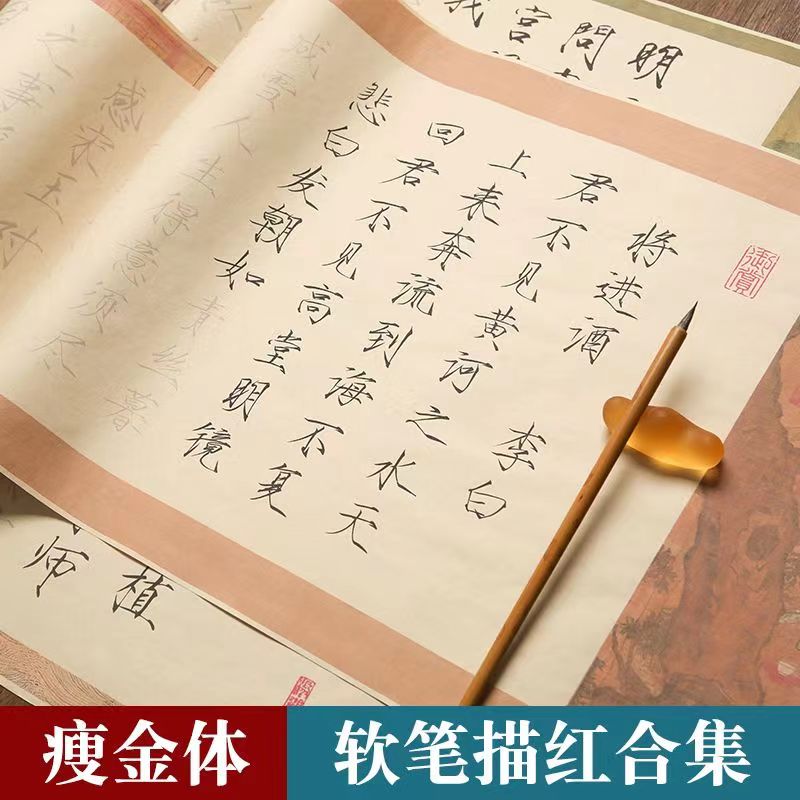 明
問
宫
我
御赏
将进酒 李白
君不见黄河之水天
上来奔流到海不复
回君不见高堂明镜
悲白发朝如青丝暮
成雪人生得意须尽
感宋玉对
之事
植
师
瘦金体
软笔描红合集